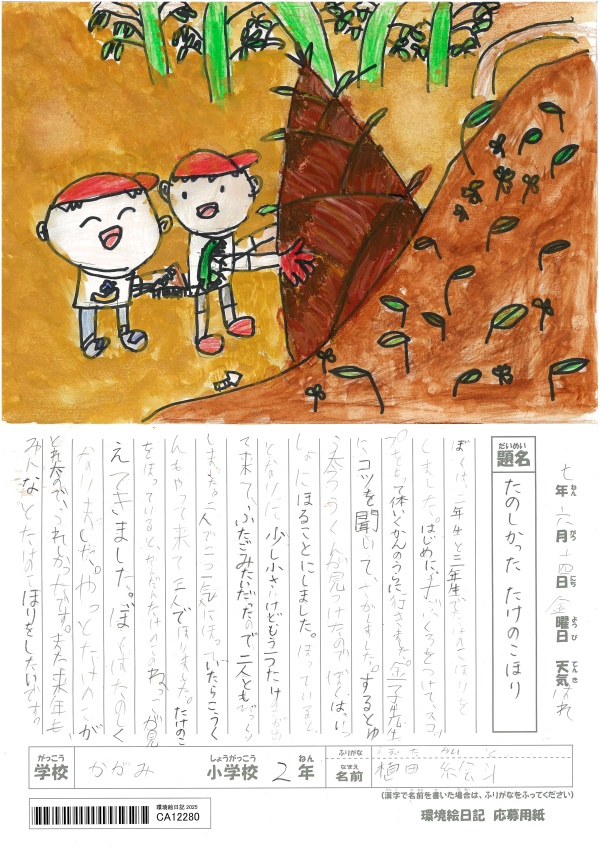 七年六月十四日金曜日 天気 はれ
ねん がつ にち ようび てんき
だいめい
題名 たのしかった たけのこほり
ぼくは、二年生と三年生でたけのこほりを
しました。はじめに、をつけて、スコッ
体いくかんのうらに行きました。金子先生
に、コツを聞いて、さがしました。するとゆ
う くんが見つけたので、ぼくは、いっ
しょにほることにしました。ほっていると、
となりに少し小さいけどもう一つたけ
て来て、ふたごみたいだったので二人ともびっくり
しました。二人で二つ にほっていたらこうく
んもやって来て三人でほりました。たけのこ
をほっていると、たけのこのねっこが見
えてきました。ぼくはたのしく
なりました。やっとたけのこが
とれたので、うれしかったです。また来年も
みんなとたけのこほりをしたいです。
がっこう しょうがっこう ねん ふりがな
学校 かがみ 小学校 2年
なまえ
名前 植田 絵斗
(漢字で名前を書いた場合は、ふりがなをふってください)
環境絵日記 2025
CA12280
環境絵日記 応募用紙